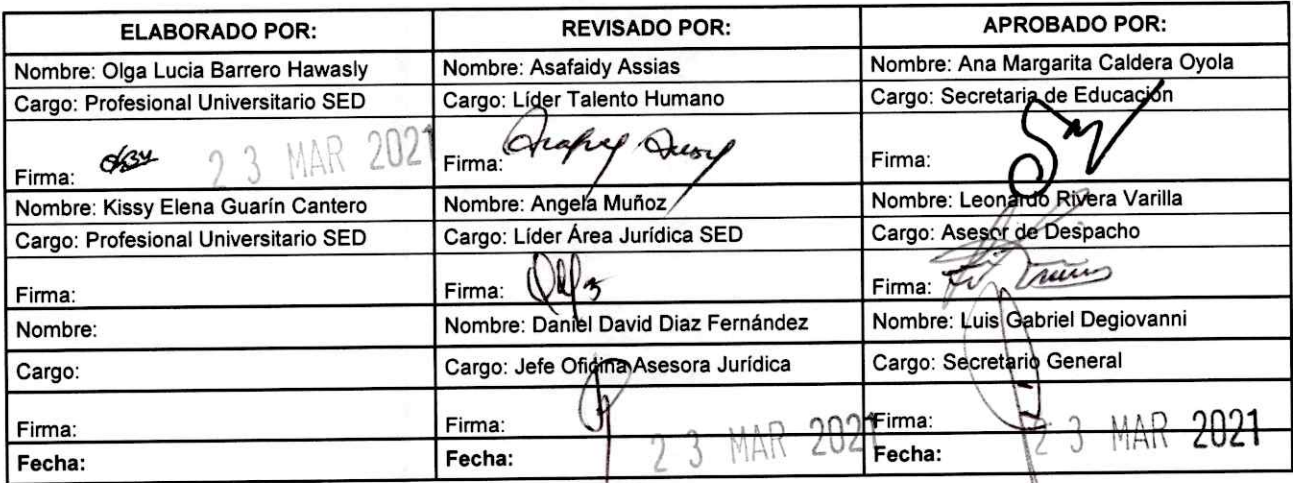 ELABORADO POR: REVISADO POR: APROBADO POR:
Nombre: Olga Lucia Barrero Hawasly Nombre: Asafaidy Assias Nombre: Ana Margarita Caldera Oyola
Cargo: Profesional Universitario SED Cargo: Líder Talento Humano Cargo: Secretaria de Educación
Firma: 23 MAR 2021 Firma: Firma:
Nombre: Kissy Elena Guarín Cantero Nombre: Angela Muñoz Nombre: Leonardo Rivera Varilla
Cargo: Profesional Universitario SED Cargo: Líder Área Jurídica SED Cargo: Asesor de Despacho
Firma: Firma: Firma:
Nombre: Nombre: Daniel David Diaz Fernández Nombre: Luis Gabriel Degiovanni
Cargo: Cargo: Jefe Oficina Asesora Jurídica Cargo: Secretario General
Firma: Firma: Firma:
Fecha: Fecha: 23 MAR 2021 Fecha: 23 MAR 2021